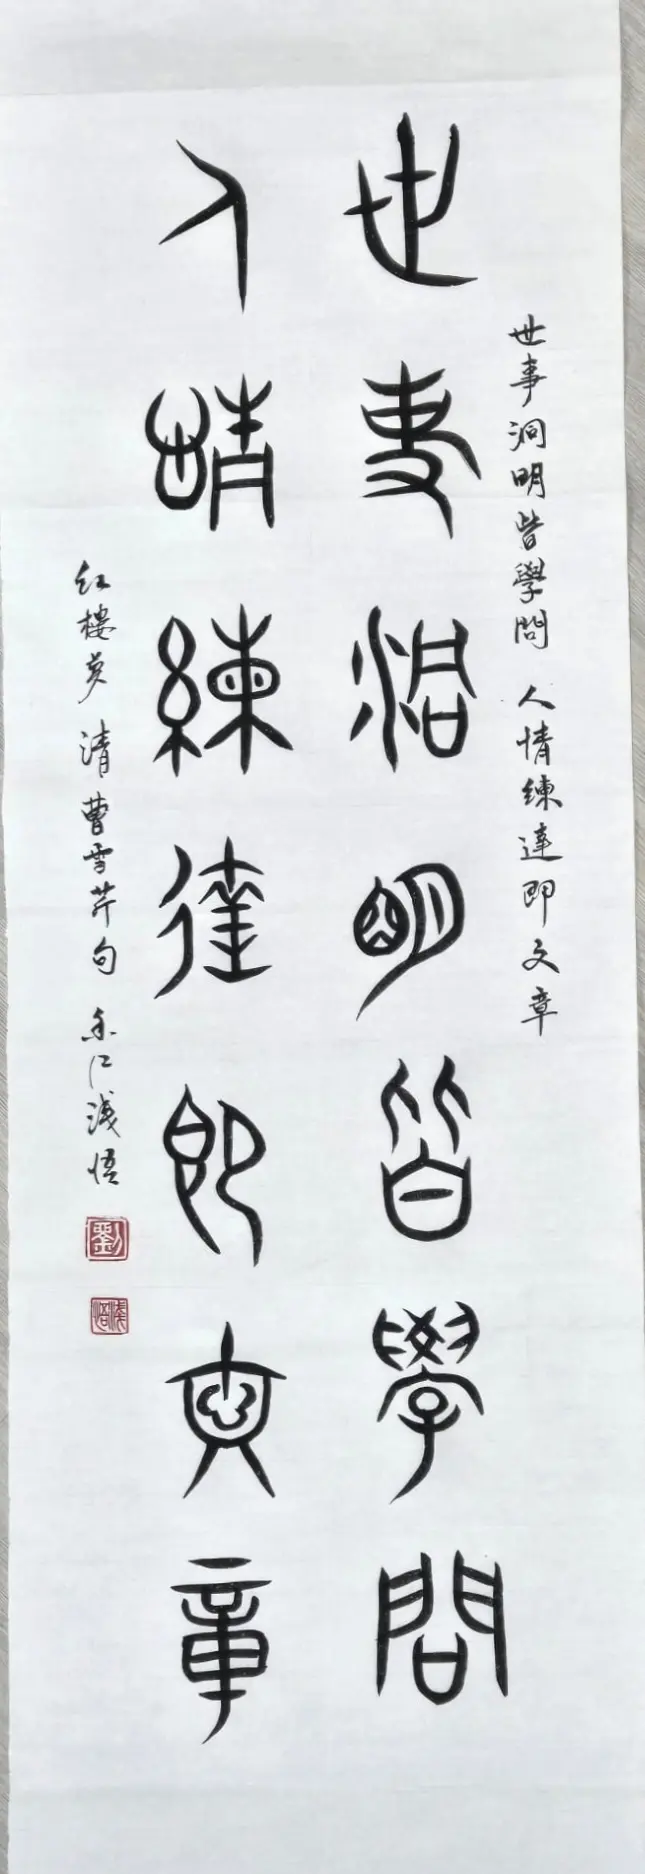 世事洞明皆學問 人情練達即文章
世事洞明皆學問
人情練達即文章
紅樓夢 清 曹雪芹句 秉仁浅悟
劉
浅悟